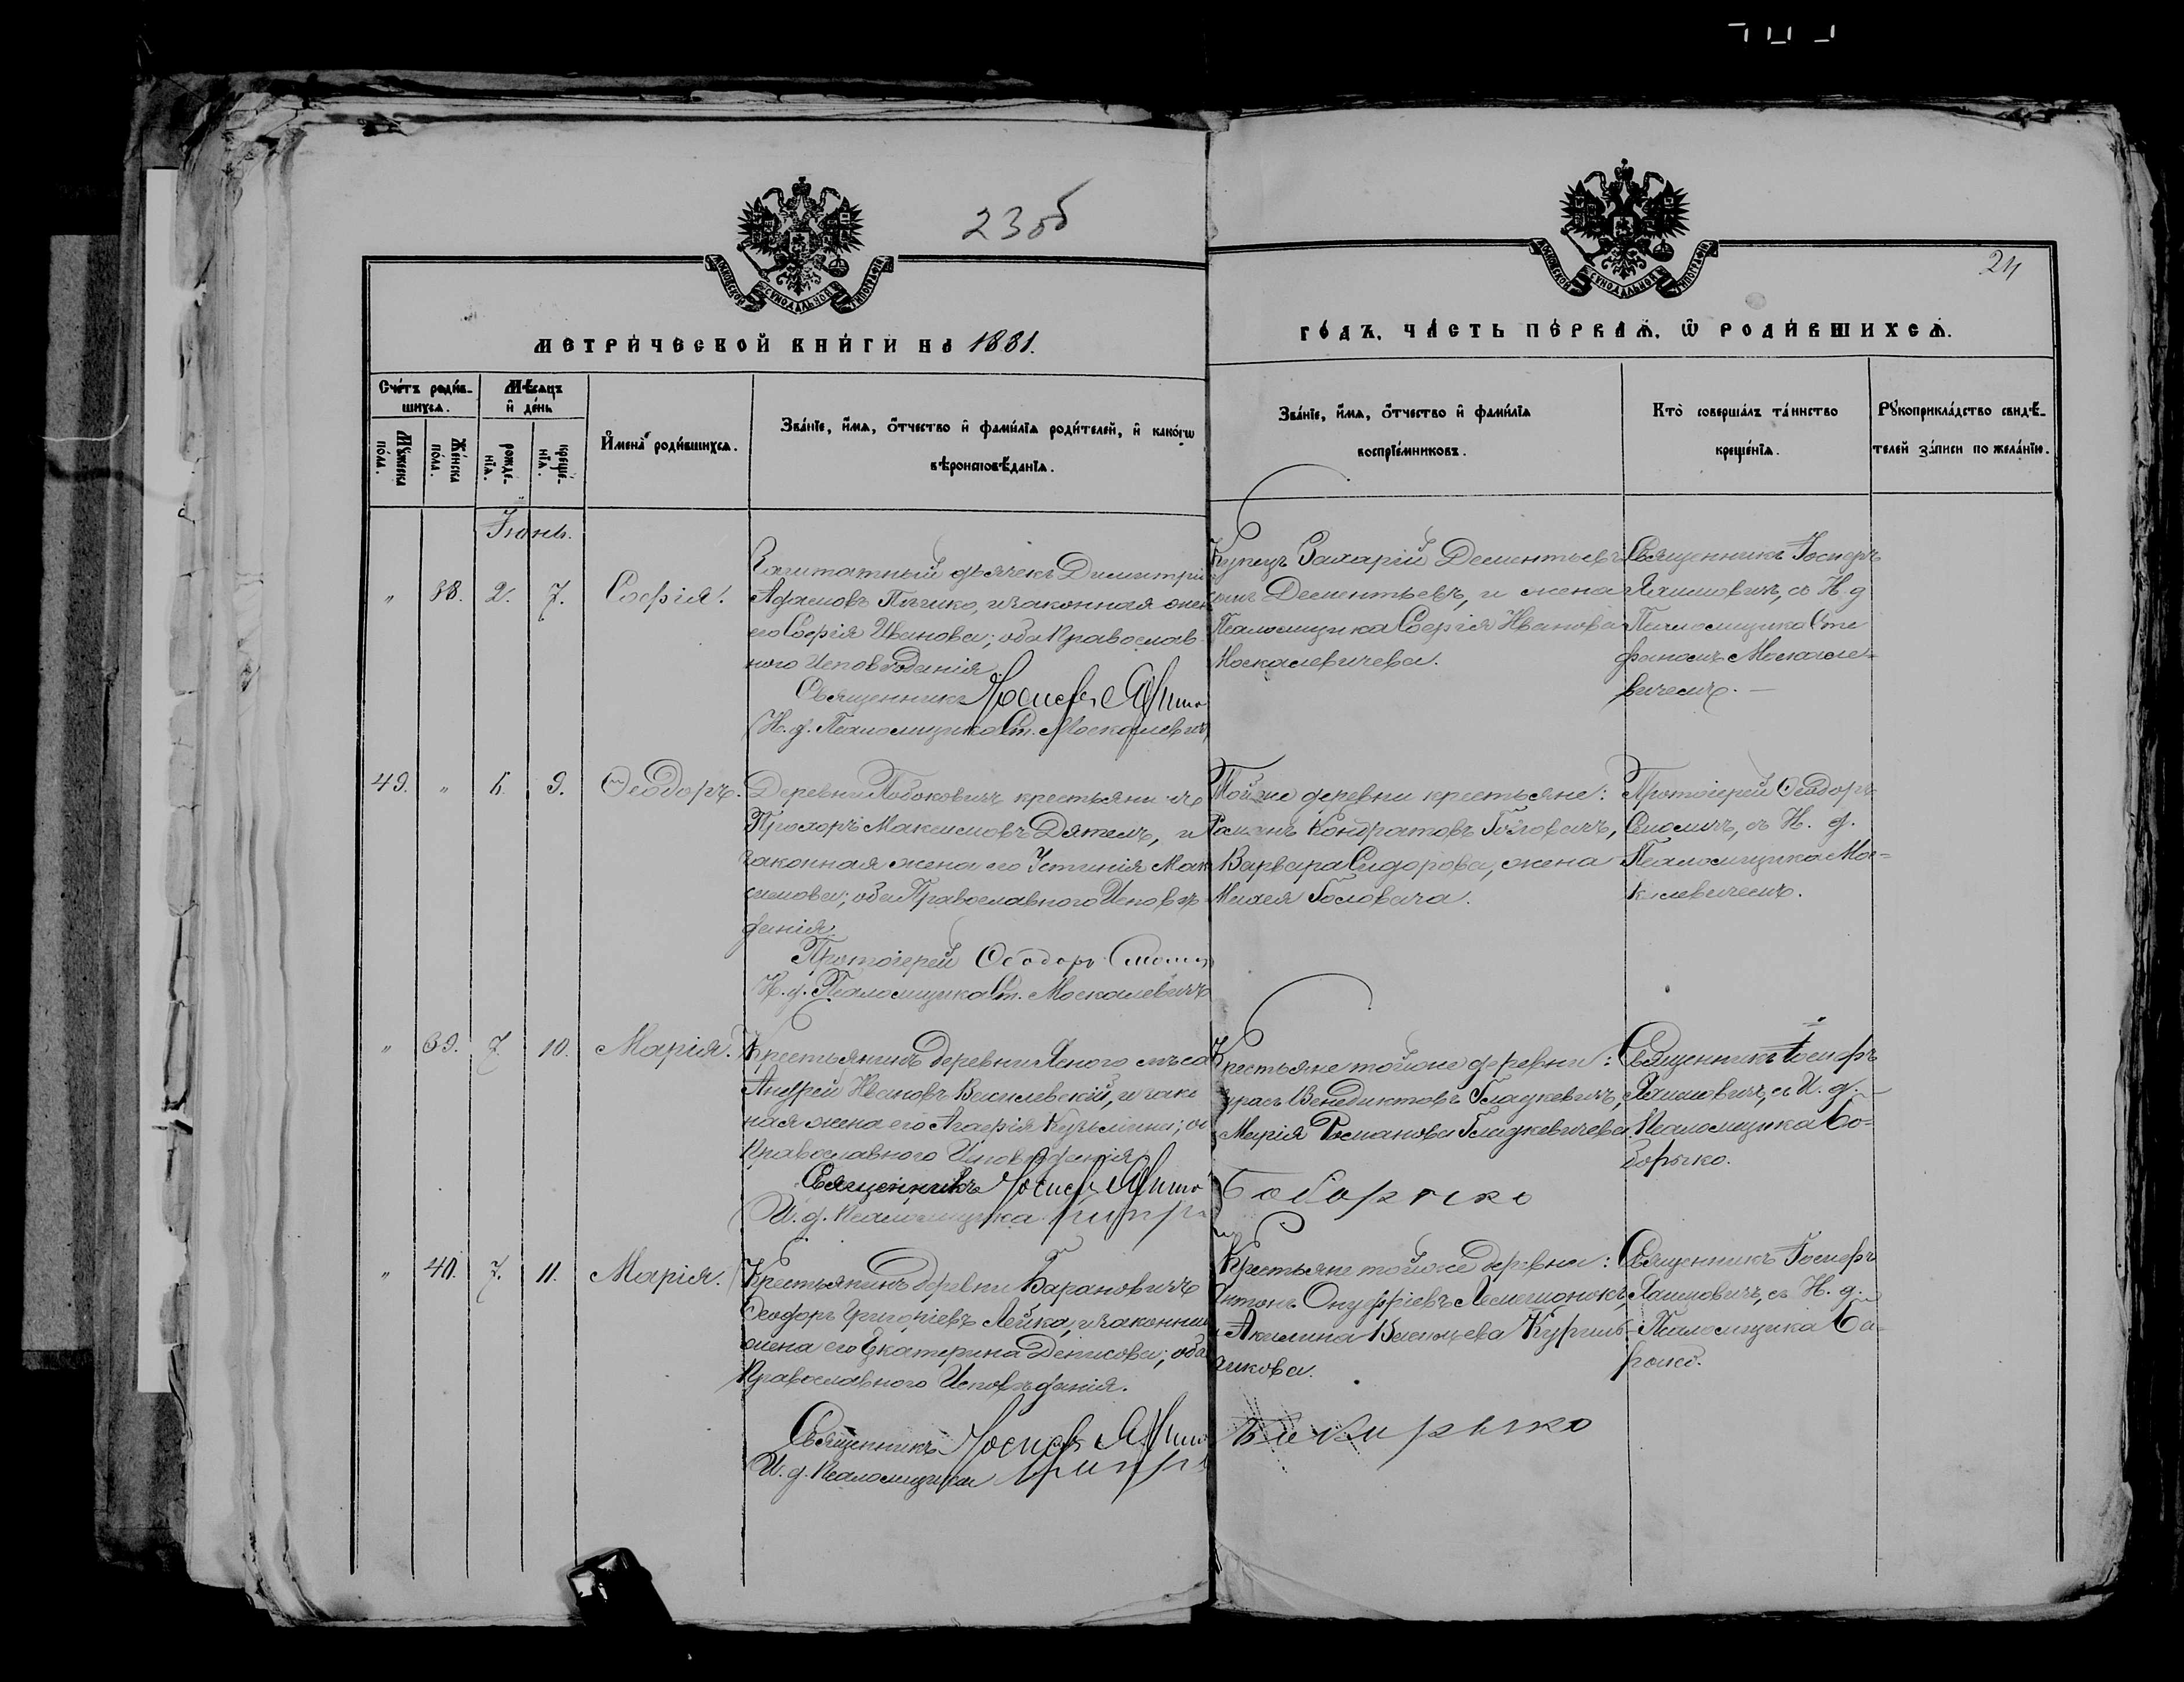 23 об
24
МОСКОВСКОЙ СѴНОДАЛЬНОЙ ТИПОГРАФІИ
МОСКОВСКОЙ СѴНОДАЛЬНОЙ ТИПОГРАФІИ
МЕТРИЧЕСКОЙ КНИГИ НА 1881.
ГОДЪ, ЧАСТЬ ПЕРВАЯ, Ѿ РОДИВШИХСЯ.
Счетъ родив-
шихся.
Мужеска пола.
Женска пола.
Мѣсяцъ
и день
рожде-
нія.
креще-
нія.
Имена родившихся.
Званіе, имя, отчество и фамилія родителей, и какогѡ
вѣроисповѣданія.
Званіе, имя, отчество и фамилія
воспріемниковъ.
Кто совершалъ таинство
крещенія.
Рукоприкладство свидѣ-
телей записи по желанію.
Іюнь.
" 38. 2. 7. Софія.
Заштатный дьячекъ Димитрій
Адамовъ Пычко, и законная жен
его Софія Иванова; оба Православ-
ного Исповѣданія
Священникъ Іосифъ
И. д. Псаломщика Ст. Москалевичъ
Купецъ Захарій Дементьевъ
Дементьевъ, и жена
Псаломщика Софія Иванова
Москалевичева.
Священникъ Іосифъ
Яхимовичъ, съ И. д
Псаломщика Сте
фаномъ Москале-
вичемъ.
49. " 9. Ѳеодоръ.
Деревни крестьянинъ
Прохоръ Максимовъ Дятелъ, и
законная жена его Устинія Мак
симова; оба Православного Исповѣ
данія.
Протоіерей Ѳеодоръ
И. д. Псаломщика Ст. Москалевичъ
Той же деревни крестьяне:
Романъ Кондратовъ Головачъ,
Варвара Сидорова, жена
Михея Головача.
Протоіерей Ѳеодоръ
съ И. д.
Псаломщика Мос=
калевичемъ.
" 39. 7. 10. Марія.
Крестьянинъ деревни Ясного лѣса
Андрей Ивановъ Василевскій, и зако
ная жена его Агафія Кузьмина; об
Православного Исповѣданія
Священникъ Іосифъ
И. д. Псаломщика
Крестьяне тойже деревни:
Венедиктовъ Гладкевичъ,
Марія Романова Гладкевичева.
Бобарыко
Священникъ Іосифъ
Яхимовичъ, съ И. д.
Псаломщика Бо=
борыко.
" 40. 7. 11. Марія.
Крестьянинъ деревни Барановичъ
Ѳеодоръ Григоріевъ Лейко, и законная
жена его Екатерина Денисова; оба
Православного Исповѣданія.
Священникъ Іосифъ
И. д. Псаломщика
Крестьяне тойже деревни:
Антонъ Онуфріевъ
Акилина
Священникъ Іосифъ
Яхимовичъ, съ И. д.
Псаломщика